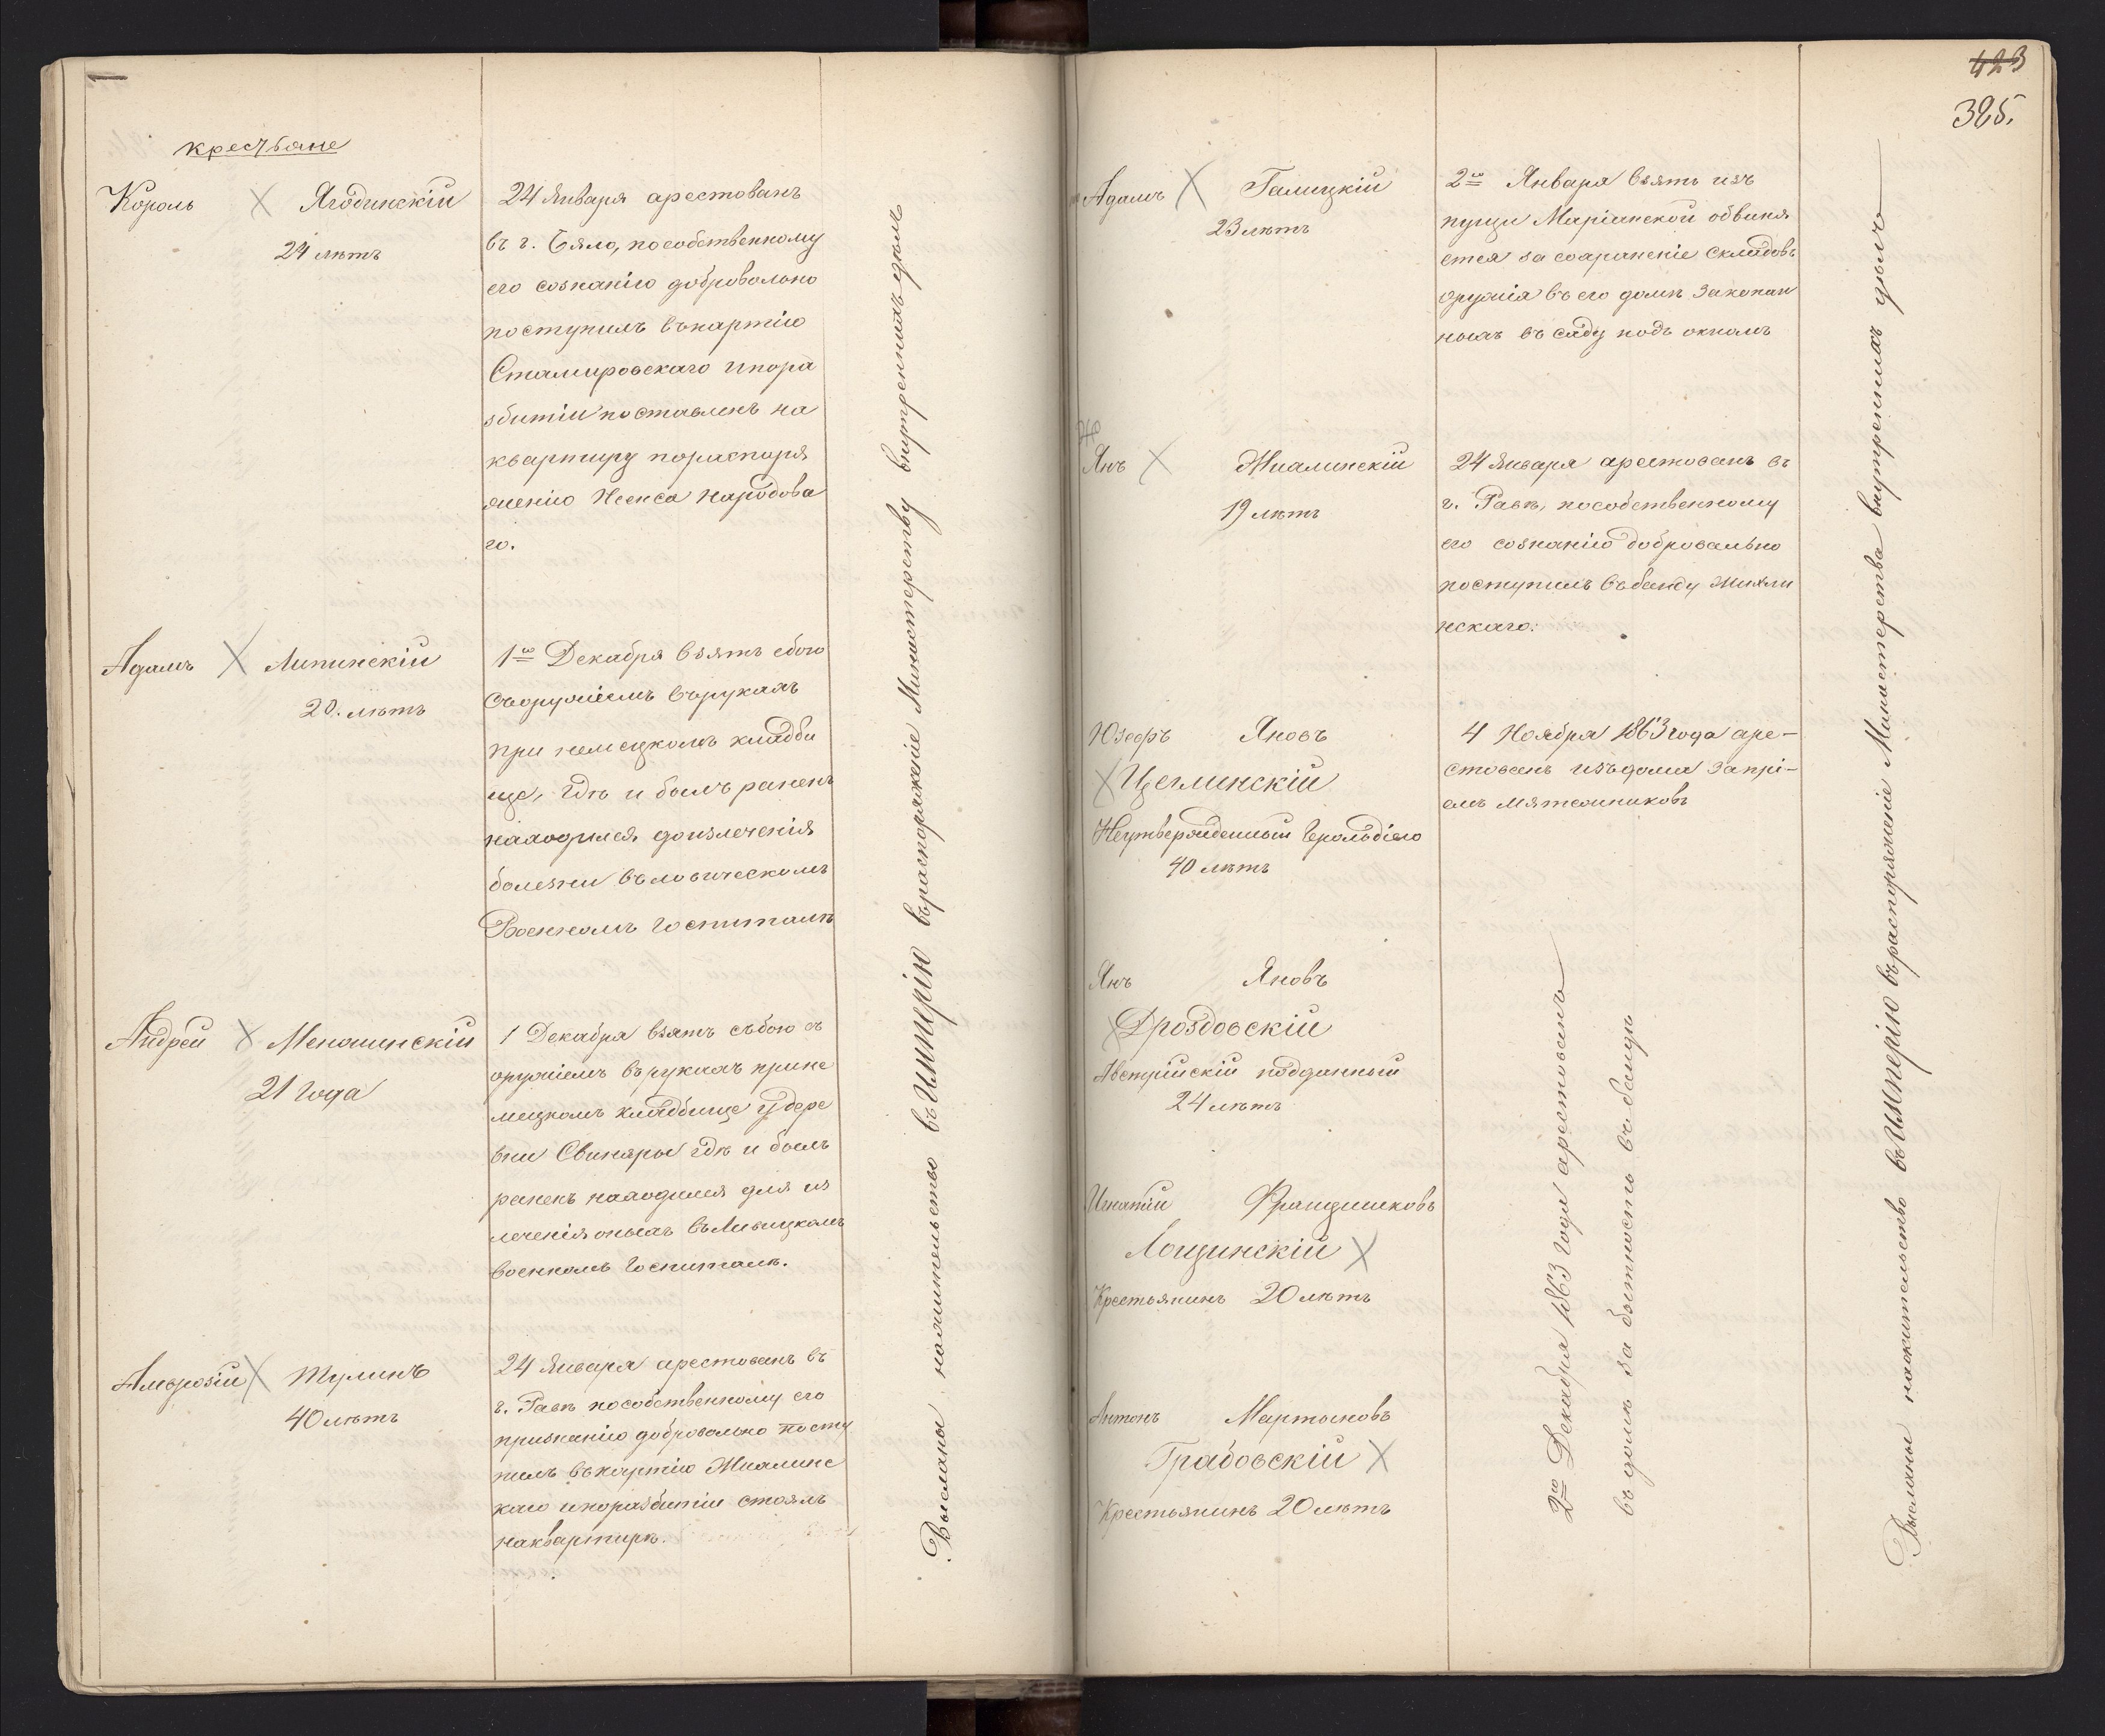 крестьяне
Король Ягодинскій
24 лѣтъ
24 Января арестованъ
въ г. Бяло, пособственному
его сознанію добровольно
поступилъ въпартію
Стамировскаго ипора
збитіи поставленъ на
квартиру пораспоря
женію Ксенса Народова
го.
Адамъ Липинскій
20. лѣтъ
1го Декабря взятъ сбою
сооружіемъ върукахъ
при немецкомъ кладби
ще, гдѣ и былъ раненъ
находился доизлеченія
болезни въловическомъ
Военномъ госпиталѣ
Андрей Меножинскій
21 года
1 Декабря взятъ събою съ
оружіемъ върукахъ прине
мецкомъ кладбище удере
вни Свинары гдѣ и былъ
раненъ находился для из
леченія оныхъ въЛовицкомъ
военномъ госпиталѣ.
Амврозій Тулинъ
40 лѣтъ
24 Января арестованъ въ
г. Равѣ пособственному его
признанію добровольно посту
пилъ въпартію Жихлинс
каго ипоразбитіи стоялъ
наквартирѣ.
Высланы нажительство въИмперію въраспоряженіе Министерству внутреннихъ дѣлъ
423
385.
Адамъ Галицкій
23 лѣтъ
2го Января взятъ изъ
пущи Маріанской обвиня
ется за сохраненіе складовъ
оружія въ его домѣ закопан
ныхъ въ саду подъ окномъ
Янъ Жихлинскій
19 лѣтъ
24 Января арестованъ въ
г. Равѣ, пособственному
его сознанію добровально
поступилъ въбанду Жихли
нскаго.
Юзефъ Яновъ
Цеглинскій
Неутвержденный Герольдіею
40 лѣтъ
4 Ноября 1863 года аре-
стованъ изъдома запрі-
емъ мятежниковъ
Янъ Яновъ
Дроздовскій
Австрійскій подданный
24 лѣтъ
Игнатій Францишковъ
Лощинскій
Крестьянинъ 20 лѣтъ
Антонъ Мартыновъ
Грабовскій
Крестьянинъ 20 лѣтъ
2го Декабря 1863 года арестованъ
въ домѣ за бытность въ бандѣ
Высланы нажительство въИмперію въраспоряженіе Министерства внутреннихъ дѣлъ